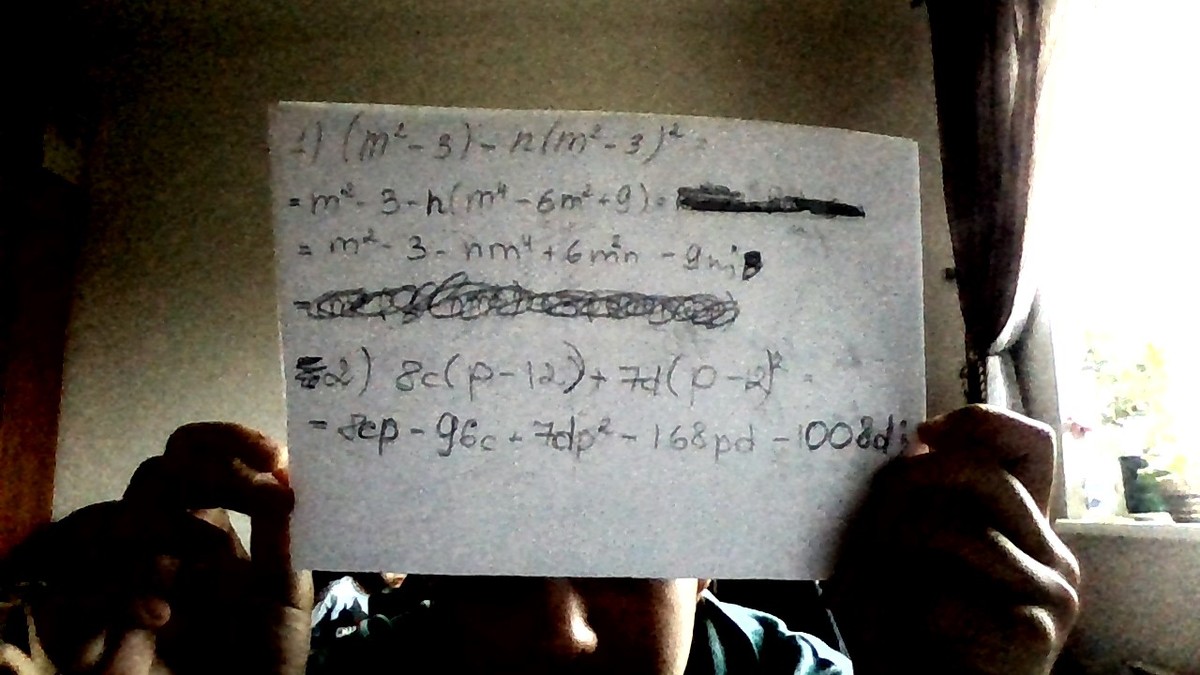 1) (m² - 3) - n(m² - 3)² =
= m² - 3 - n(m⁴ - 6m² + 9) =
= m² - 3 - nm⁴ + 6m²n - 9n;
2) 8c(p - 12) + 7d(p - 12)² =
= 8cp - 96c + 7dp² - 168pd - 1008d;